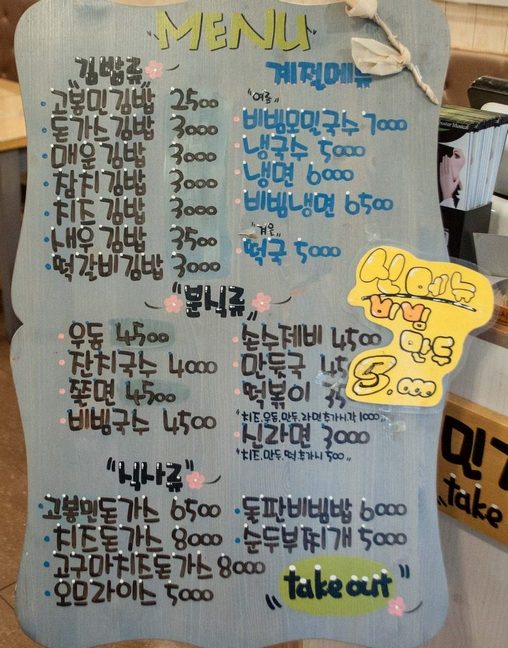 "MENU"
김밥류
고봉민김밥 2500
돈가스김밥 3000
매운김밥 3000
참치김밥 3000
치즈김밥 3000
새우김밥 3500
떡갈비김밥 3000
계절메뉴
"여름"
비빔모밀국수 7000
냉국수 5000
냉면 6000
비빔냉면 6500
"겨울"
떡국 5000
신메뉴
비빔
만두
5,000
"분식류"
우동 4500
잔치국수 4000
쫄면 4500
비빔국수 4500
손수제비 4500
만둣국 45
떡볶이 35
"치즈,우동,만두,라면추가시각1000"
신라면 3000
"치즈,만두,떡추가시 500"
"식사류"
고봉민돈가스 6500
치즈돈가스 8000
고구마치즈돈가스 8000
오므라이스 5000
돌판비빔밥 6000
순두부찌개 5000
"take out"
take